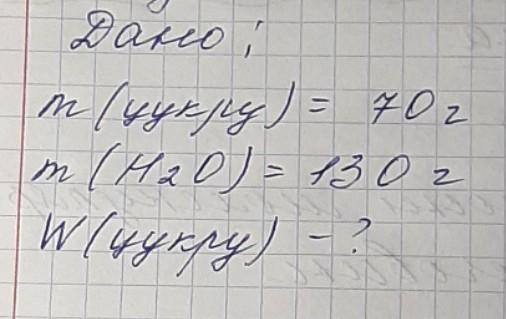 Дано:
m (цукру) = 70 г
m (H2O) = 130 г
W (цукру) - ?